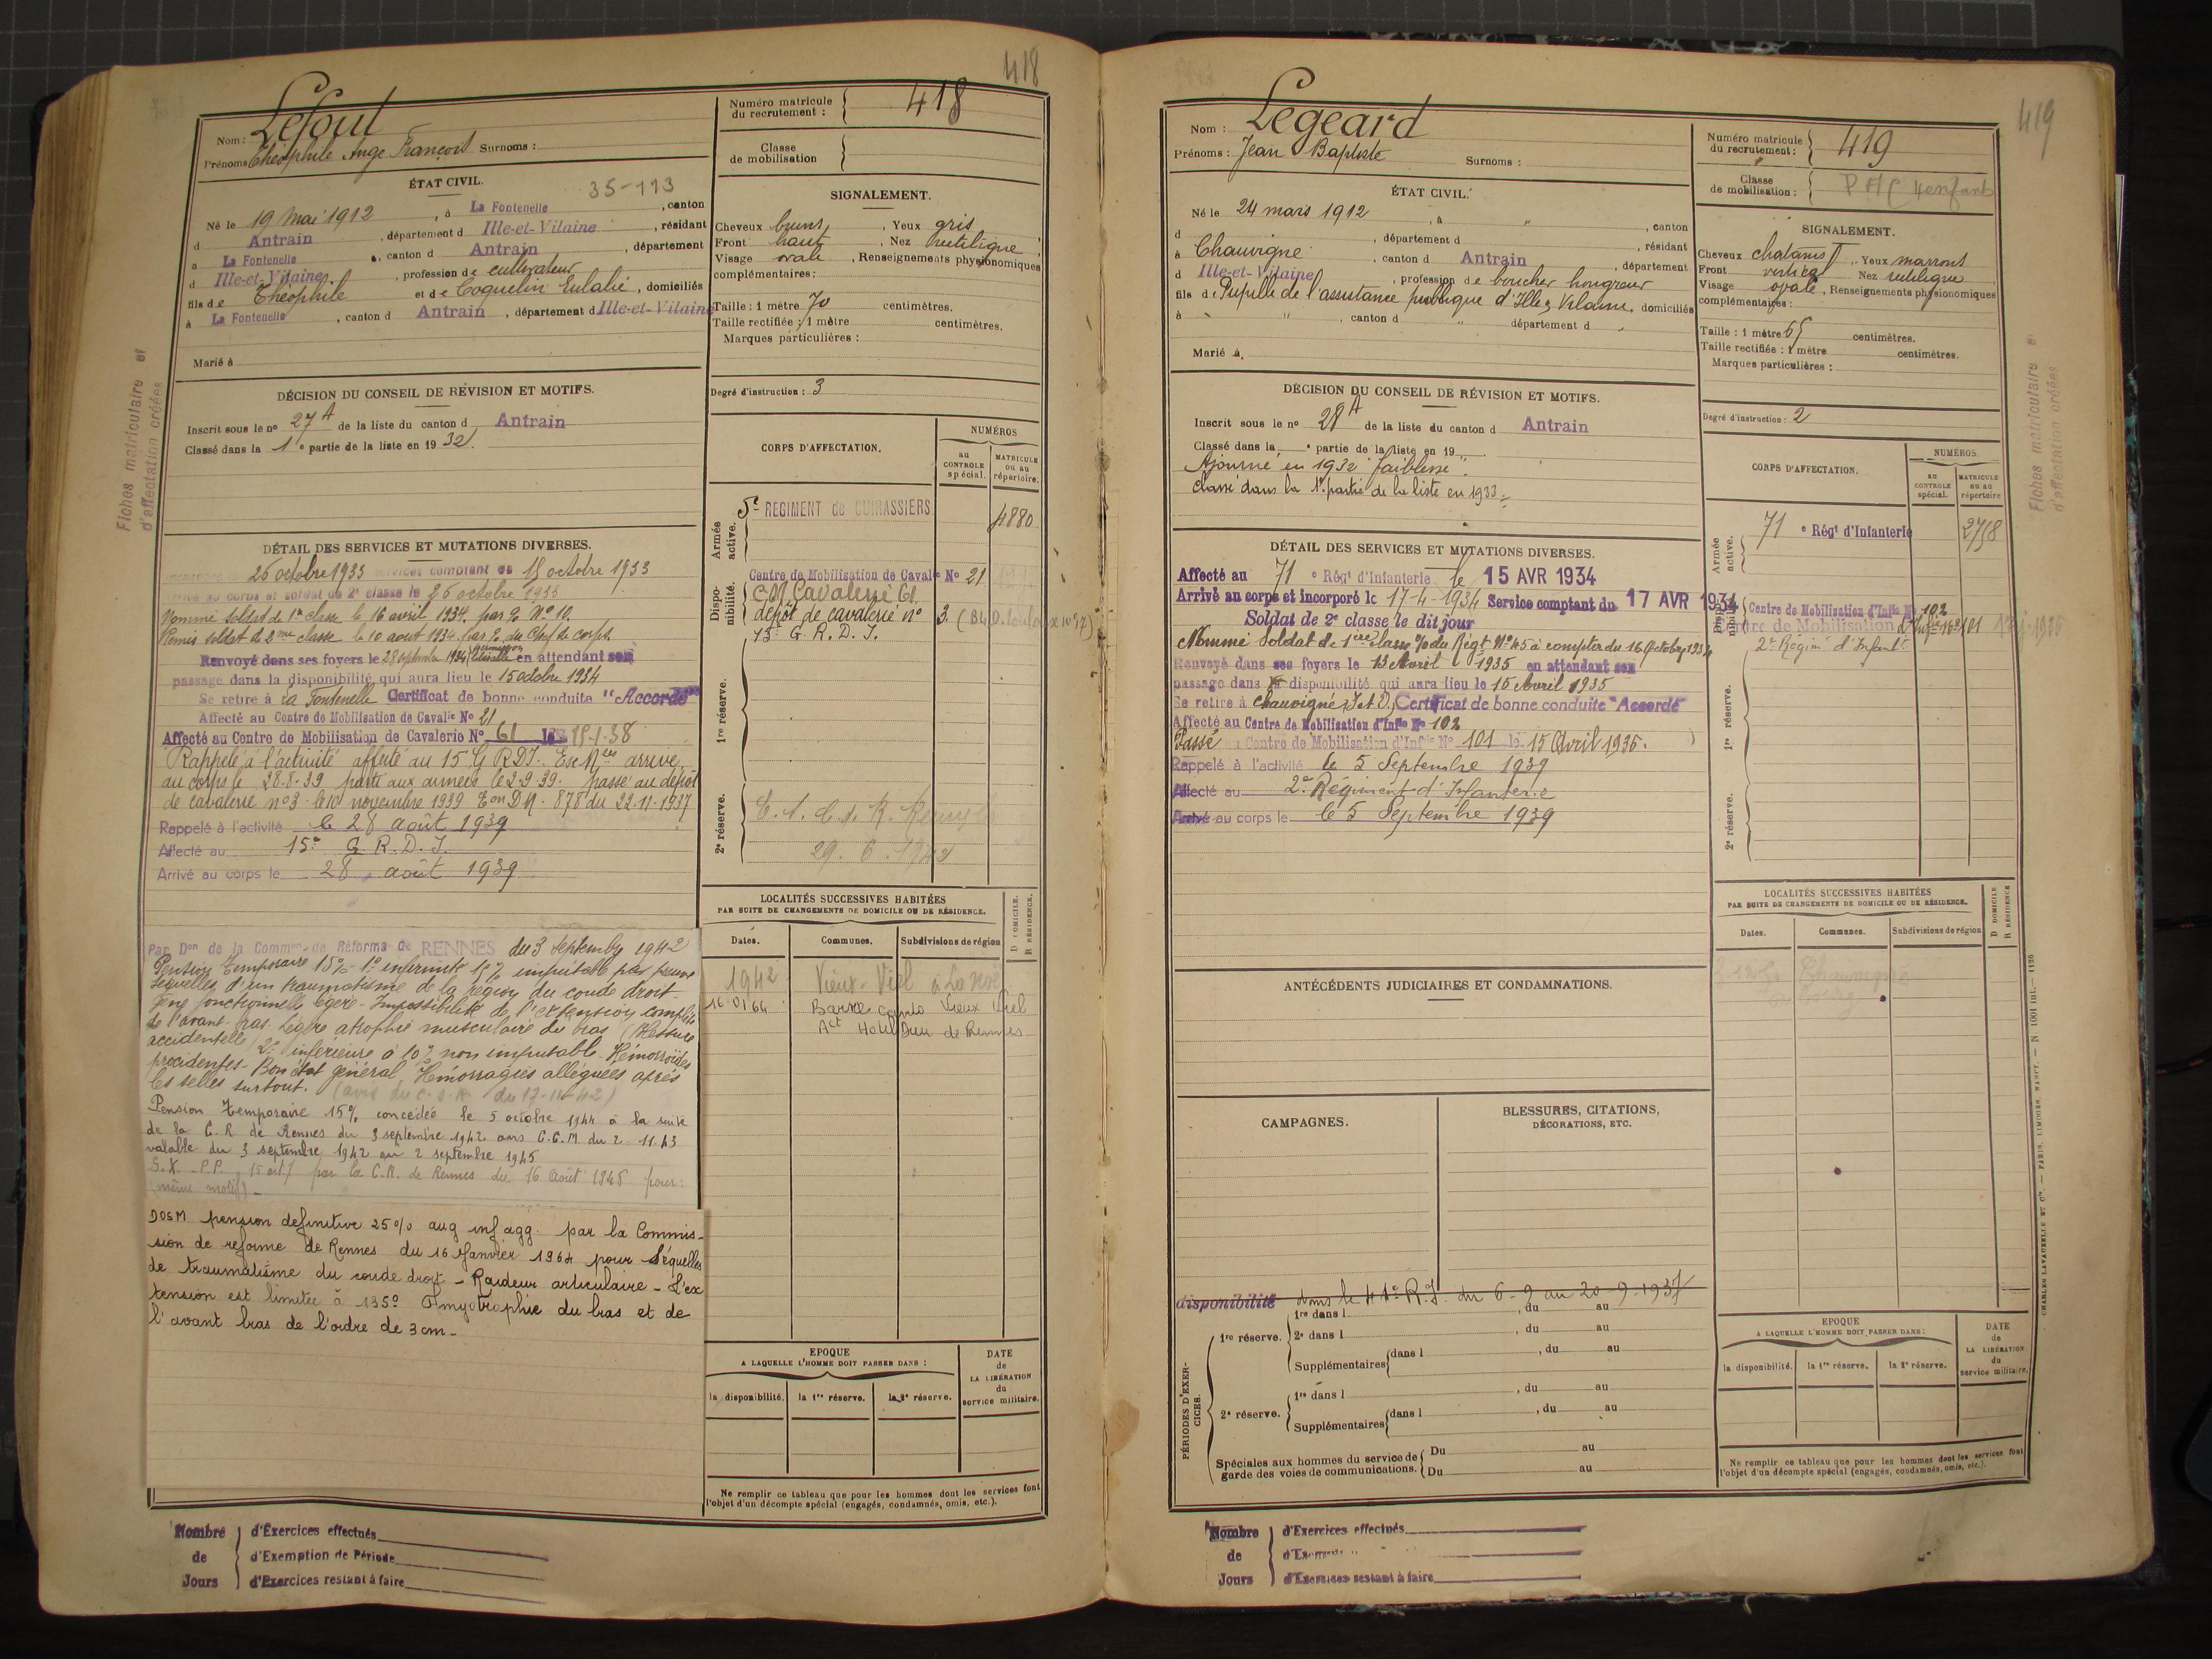 418
Nom : Lefoul
Prénoms Théophile Ange François Surnoms :
Numéro matricule du recrutement : 418
Classe de mobilisation
ÉTAT CIVIL.
35-113
Né le 19 mai 1912, à La Fontenelle, canton
d Antrain, département d Ille-et-Vilaine, résidant
à La Fontenelle, canton d Antrain, département
d Ille-et-Vilaine, profession de cultivateur
fils de Théophile et de Coquelin Eulalie, domiciliés
à La Fontenelle, canton d Antrain, département d Ille-et-Vilaine
Marié à
SIGNALEMENT.
Cheveux bruns, Yeux gris
Front haut, Nez rectiligne
Visage ovale, Renseignements physionomiques
complémentaires :
Taille : 1 mètre 70 centimètres.
Taille rectifiée : 1 mètre centimètres.
Marques particulières :
Degré d'instruction : 3
Fiches matriculaire et
d'affectation créées
DÉCISION DU CONSEIL DE RÉVISION ET MOTIFS.
Inscrit sous le no 27 A de la liste du canton d Antrain
Classé dans la 1e partie de la liste en 1932.
DÉTAIL DES SERVICES ET MUTATIONS DIVERSES.
26 octobre 1933 services comptant du 15 octobre 1933
au corps et soldat de 2e classe le 26 octobre 1933
Nommé soldat de 1re classe le 16 avril 1934 par % No 10.
Remis soldat de 2me classe le 10 août 1934 par % du Chef de corps.
Renvoyé dans ses foyers le 28 septembre 1934 permission libérable en attendant son
passage dans la disponibilité qui aura lieu le 15 octobre 1934
Se retire à La Fontenelle Certificat de bonne conduite "Accordé"
Affecté au Centre de Mobilisation de Cavalie No 21
Affecté au Centre de Mobilisation de Cavalerie No 61 le 15-1-38
Rappelé à l'activité affecté au 15 G.R.D.I. arrivé
au corps le 28.8.39 parti aux armées le 2.9.39. passé au dépôt
de cavalerie no 3 le 10 novembre 1939 Eon D.M. 878 du 22.11.1937
Rappelé à l'activité le 28 août 1939
Affecté au 15e G.R.D.I.
Arrivé au corps le 28 août 1939
Par Don de la Common de Réforme de RENNES du 3 septembre 1942
Pension temporaire 15% - 1o infirmité 15% imputable par preuve
séquelles d'un traumatisme de la région du coude droit -
gêne fonctionnelle légère - Impossibilité de l'extension complète
de l'avant-bras. Légère atrophie musculaire du bras (Blessure
accidentelle) 2o inférieure à 10% non imputable. Hémorroïdes
procidentes - Bon état général. Hémorragies alléguées après
les selles surtout. (avis du C.S.R. du 17-11-42)
Pension temporaire 15% concédée le 5 octobre 1944 à la suite
de la C.R. de Rennes du 3 septembre 1942 avis C.C.M. du 2-11.43
valable du 3 septembre 1942 au 2 septembre 1945
P.P. 15 par la C.R. de Rennes du 16 Août 1945 pour :
(même motif) -
DOSM pension définitive 25% aug inf agg. par la Commis-
sion de réforme de Rennes du 16 Janvier 1964 pour Séquelles
de traumatisme du coude droit - Raideur articulaire - L'ex
tension est limitée à 135o Amyotrophie du bras et de
l'avant bras de l'ordre de 3 cm -
CORPS D'AFFECTATION.
NUMÉROS
au CONTROLE spécial.
MATRICULE ou au répertoire.
Armée active.
5e REGIMENT de CUIRASSIERS 4880
Disponibilité.
Centre de Mobilisation de Cavalie No 21
CM Cavalerie 61
dépôt de cavalerie no 3.
15e G.R.D.I.
1re réserve.
2e réserve.
29.6.1942
LOCALITÉS SUCCESSIVES HABITÉES
PAR SUITE DE CHANGEMENTS DE DOMICILE OU DE RÉSIDENCE.
D DOMICILE.
R RÉSIDENCE.
Dates. Communes. Subdivisions de région
1942 Vieux-Viel à La Noë
16-01 64 Vieux Viel
Act Hôtel Dieu de Rennes
EPOQUE
A LAQUELLE L'HOMME DOIT PASSER DANS :
la disponibilité. la 1re réserve. la 2e réserve.
DATE de LA LIBÉRATION du service militaire.
Ne remplir ce tableau que pour les hommes dont les services font
l'objet d'un décompte spécial (engagés, condamnés, omis, etc.).
Nombre de Jours
d'Exercices effectués
d'Exemption de Période
d'Exercices restant à faire
419
Nom : Legeard
Prénoms : Jean Baptiste Surnoms :
Numéro matricule du recrutement : 419
Classe de mobilisation : 4 enfants
ÉTAT CIVIL.
Né le 24 mars 1912, à ", canton
d , département d , résidant
à Chauvigné, canton d Antrain, département
d Ille-et-Vilaine, profession de boucher hongreur
fils de Pupille de l'assistance publique d'Ille & Vilaine, domiciliés
à " , canton d " département d
Marié à
SIGNALEMENT.
Cheveux chatains Yeux marrons
Front vertical Nez rectiligne
Visage ovale, Renseignements physionomiques
complémentaires :
Taille : 1 mètre 65 centimètres.
Taille rectifiée : 1 mètre centimètres.
Marques particulières :
Degré d'instruction : 2
Fiches matriculaire et
d'affectation créées
DÉCISION DU CONSEIL DE RÉVISION ET MOTIFS.
Inscrit sous le no 28 A de la liste du canton d Antrain
Classé dans la e partie de la liste en 19
Ajourné en 1932 "faiblesse".
Classé dans la 1e partie de la liste en 1933.
DÉTAIL DES SERVICES ET MUTATIONS DIVERSES.
Affecté au 71 e Régt d'Infanterie le 15 AVR 1934
Arrivé au corps et incorporé le 17-4-1934 Service comptant du 17 AVR 1934
Soldat de 2e classe le dit jour
Nommé Soldat de 1ère classe % du Régt No 45 à compter du 16 Octobre 1934
Renvoyé dans ses foyers le 13 Avril 1935 en attendant son
passage dans la disponibilité qui aura lieu le 15 Avril 1935
Se retire à Chauvigné, I. et V. Certificat de bonne conduite "Accordé"
Affecté au Centre de Mobilisation d'Infie No 102
Passé Centre de Mobilisation d'Infie No 101 le 15 Avril 1935.
Rappelé à l'activité le 5 Septembre 1939
Affecté au 2e Régiment d'Infanterie
Arrivé au corps le le 5 Septembre 1939
CORPS D'AFFECTATION.
NUMÉROS.
au CONTROLE spécial.
MATRICULE ou au répertoire
Armée active.
71 e Régt d'Infanterie 2758
Disponibilité.
Centre de Mobilisation d'Infie No 102
Centre de Mobilisation d'Infie No 101
2e Régim d'Infant
1re réserve.
2e réserve.
ANTÉCÉDENTS JUDICIAIRES ET CONDAMNATIONS.
LOCALITÉS SUCCESSIVES HABITÉES
PAR SUITE DE CHANGEMENTS DE DOMICILE OU DE RÉSIDENCE.
D DOMICILE
R RÉSIDENCE
Dates. Communes. Subdivisions de région
CAMPAGNES.
BLESSURES, CITATIONS, DÉCORATIONS, ETC.
PÉRIODES D'EXERCICES.
disponibilité dans le 41e R.I. du 6-9 au 20-9-1937
1re réserve.
1re dans l , du au
2e dans l , du au
Supplémentaires dans l , du au
2e réserve.
1re dans l , du au
Supplémentaires dans l , du au
Spéciales aux hommes du service de garde des voies de communications.
Du au
Du au
EPOQUE
A LAQUELLE L'HOMME DOIT PASSER DANS :
la disponibilité. la 1re réserve. la 2e réserve.
DATE de LA LIBÉRATION du service militaire.
Ne remplir ce tableau que pour les hommes dont les services font
l'objet d'un décompte spécial (engagés, condamnés, omis, etc.).
CHARLES-LAVAUZELLE ET Cie. — PARIS, LIMOGES, NANCY.
Nombre de Jours
d'Exercices effectués
d'Exercices restant à faire